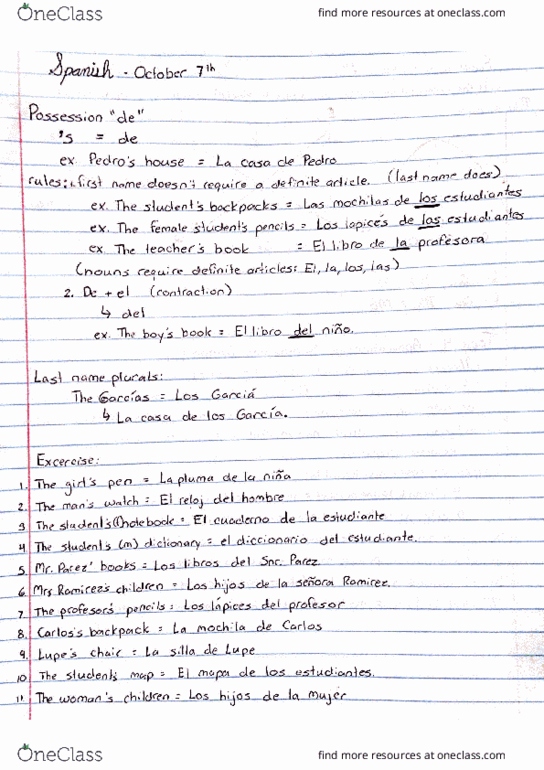 OneClass
find more resources at oneclass.com
Spanish - October 7th
Possession "de"
's = de
ex. Pedro's house = La casa de Pedro
rules: 1. first name doesn't require a definite article. (last name does)
ex. The student's backpacks = Las mochilas de los estudiantes
ex. The female student's pencils = Los lapicés de las estudiantes
ex. The teacher's book = El libro de la profesora
(nouns require definite articles: El, la, los, las)
2. De + el (contraction)
↳ del
ex. The boy's book = El libro del niño.
Last name plurals:
The Garcías = Los Garciá
↳ La casa de los García.
Excercise:
1. The girl's pen = La pluma de la niña
2. The man's watch = El reloj del hombre
3 The student's (f) notebook = El cuaderno de la estudiante
4. The student's (m) dictionary = el diccionario del estudiante.
5. Mr. Parez' books = Los libros del Snr. Parez
6. Mrs Ramirez's children = Los hijos de la señora Ramirez.
7. The profesor's pencils = Los lápices del profesor
8. Carlos's backpack = La mochila de Carlos
9. Lupe's chair = La silla de Lupe
10. The students map = El mapa de los estudiantes.
11. The woman's children = Los hijos de la mujer
OneClass
find more resources at oneclass.com